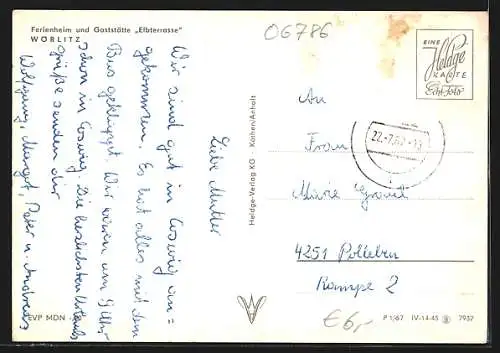 Ferienheim und Gaststätte „Elbterrasse"
WÖRLITZ
06786
EINE
Heldge
KARTE
Echt Foto
Liebe Mutter
Wir sind gut in Coswig an=
gekommen. Es hat alles mit dem
Bus geklappt. Wir waren um
schon in Coswig. Die herzlichsten Urlaubs
grüße senden dir
Wolfgang, Margot, Peter u. Andreas
Heldge-Verlag KG Köthen/Anhalt
An
Frau
Marie
4251 Polleben
Rampe 2
€6,-
EVP MDN
P 1/67 IV-14-45 7957